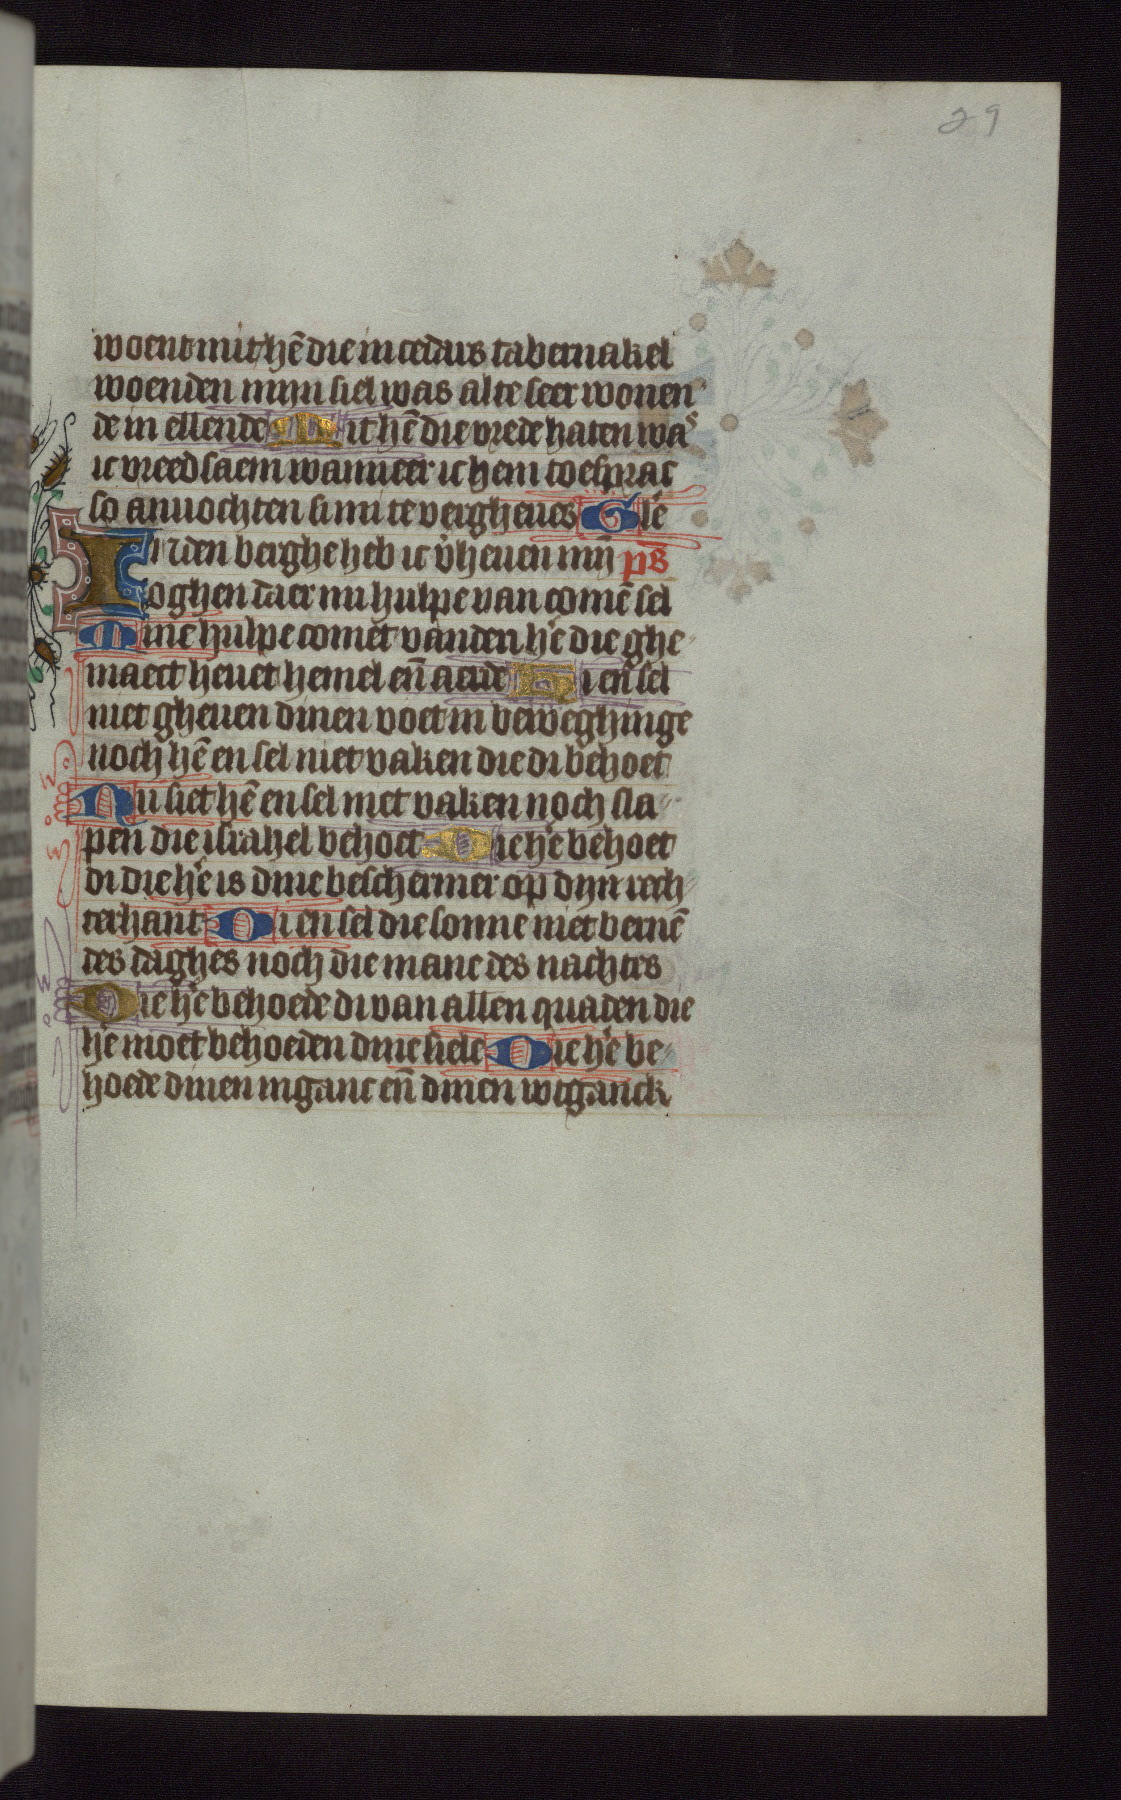 29
woent mit hē die in cedars tabernakel
woenden mijn siel was alte seer wonen
de in ellende Mit hē die vrede haten wa s
ic vreedsaem wanneer ic hem toesprac
so anvochten si mi te vergheues Gl'e
In den berghe heb ic v'heuen mijn ps
oghen daer mi hulpe van comē sel
Mine hulpe comet vanden hē die ghe
maect heuet hemel eñ aerde Di en sel
niet gheuen dinen voet in beweghinge
noch hē en sel niet vaken die di behoet
Nu siet hē en sel niet vaken noch sla
pen die israhel behoet Die he behoet
di die he is dine beschermer op dijn rech
terhant Di en sel die sonne niet bernē
des daghes noch die mane des nachtes
Die he behoede di van allen quaden die
he moet behoeden dine siele Die he be
hoede dinen inganc eñ dinen wtganck